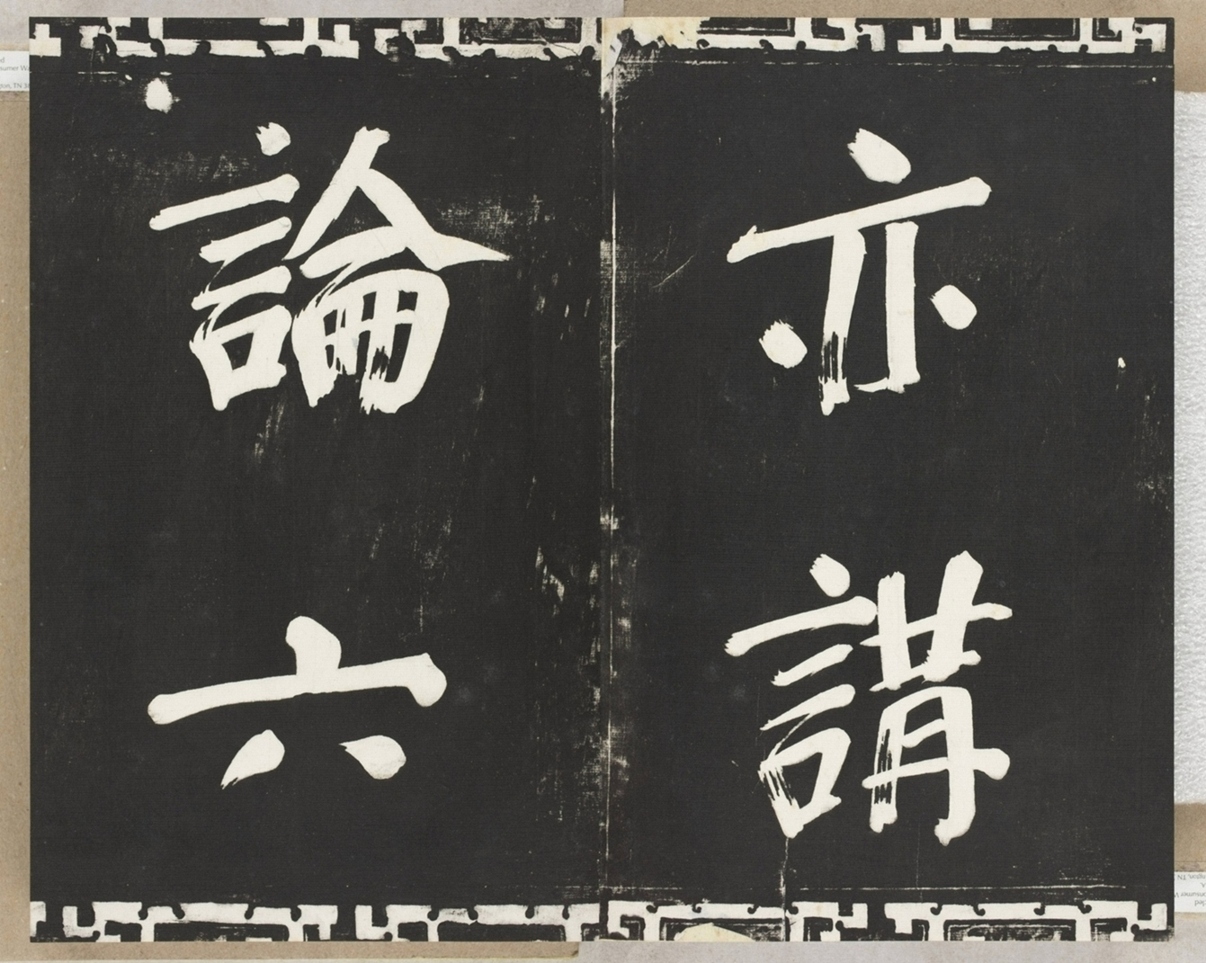 亦講
論六